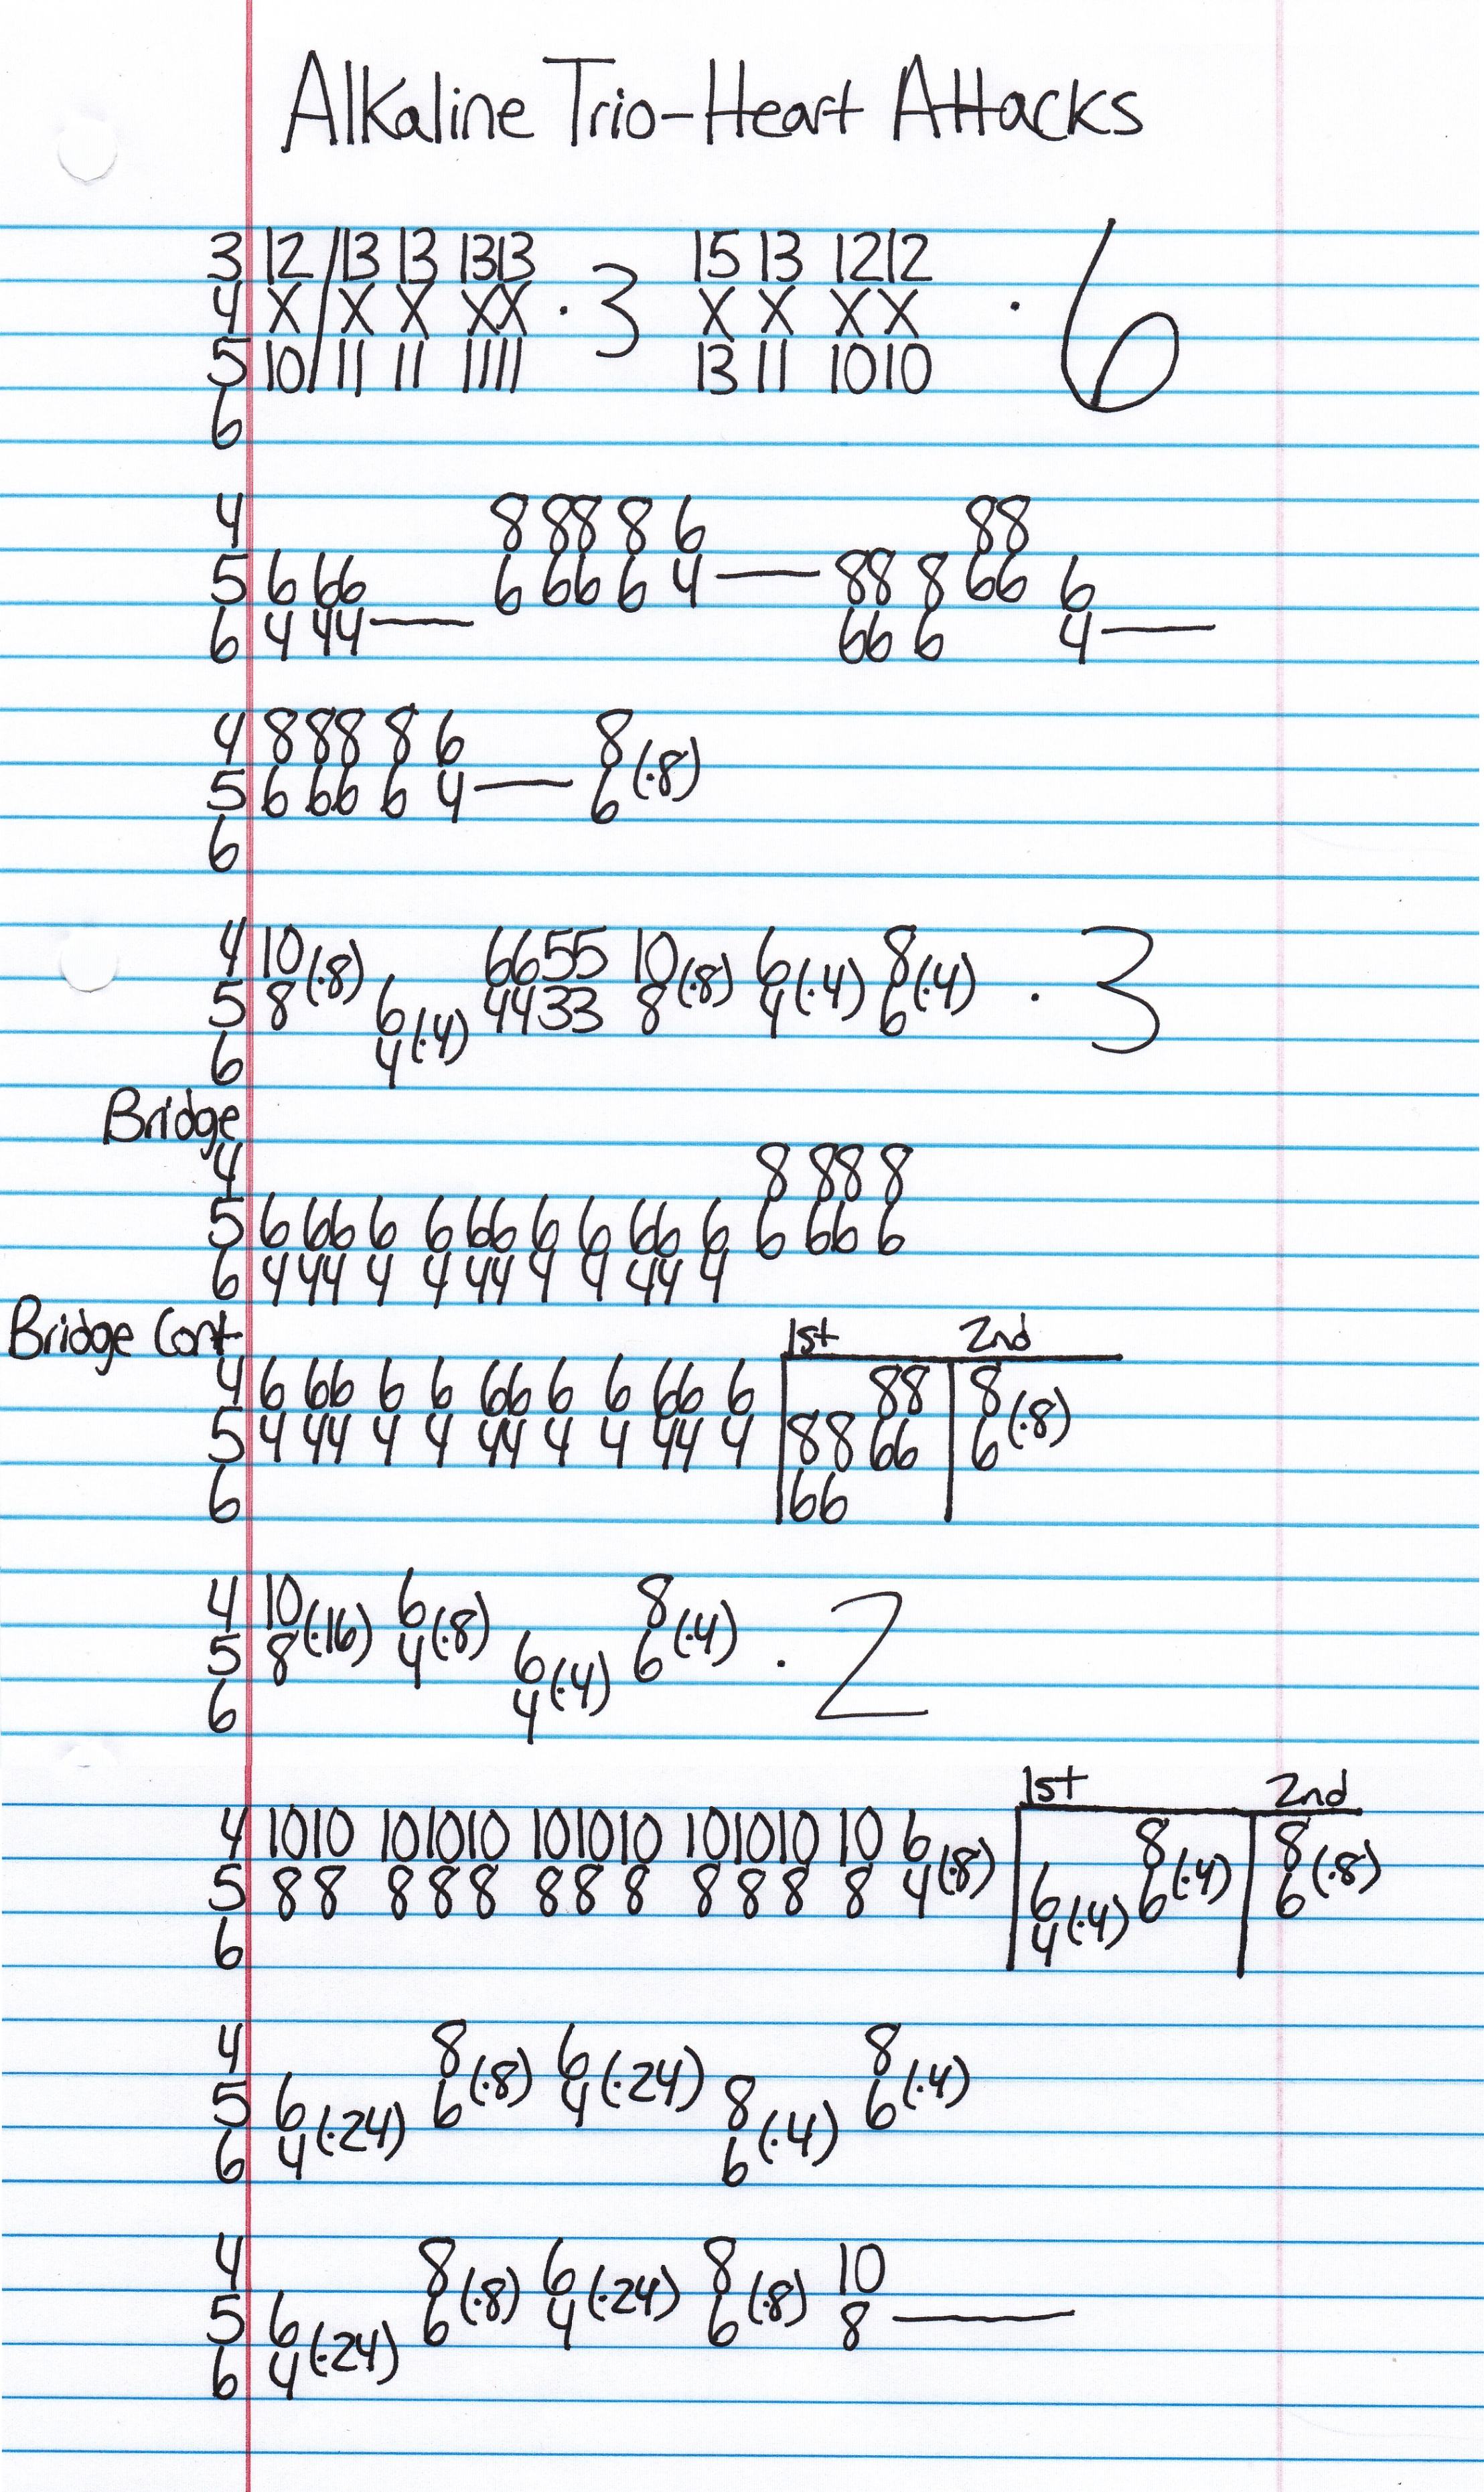 Alkaline Trio-Heart Attacks
3 12/13 13 1313 15 13 1212
4 X/X X XX · 3 X X XX · 6
5 10/11 11 1111 13 11 1010
6
4 8 88 8 6 88
5 6 66 6 66 6 4— 88 8 66 6
6 4 44— 66 6 4—
4 8 88 8 6 8
5 6 66 6 4— 6 (·8)
6
4 10 6655 10 6 8
5 8 (·8) 6 4433 8 (·8) 4 (·4) 6 (·4) · 3
6 4 (·4)
Bridge
4 8 88 8
5 6 66 6 6 66 6 6 66 6 6 66 6
6 4 44 4 4 44 4 4 44 4
Bridge Cont 1st 2nd
4 6 66 6 6 66 6 6 66 6 88 8
5 4 44 4 4 44 4 4 44 4 88 66 6 (·8)
6 66
4 10 6 8
5 8 (·16) 4 (·8) 6 6 (·4) · 2
6 4 (·4)
1st 2nd
4 1010 101010 101010 101010 10 6 8 8
5 88 888 888 888 8 4 (·8) 6 6 (·4) 6 (·8)
6 4 (·4)
4 8 6 8
5 6 6 (·8) 4 (·24) 8 6 (·4)
6 4 (·24) 6 (·4)
4 8 6 8 10
5 6 6 (·8) 4 (·24) 6 (·8) 8—
6 4 (·24)